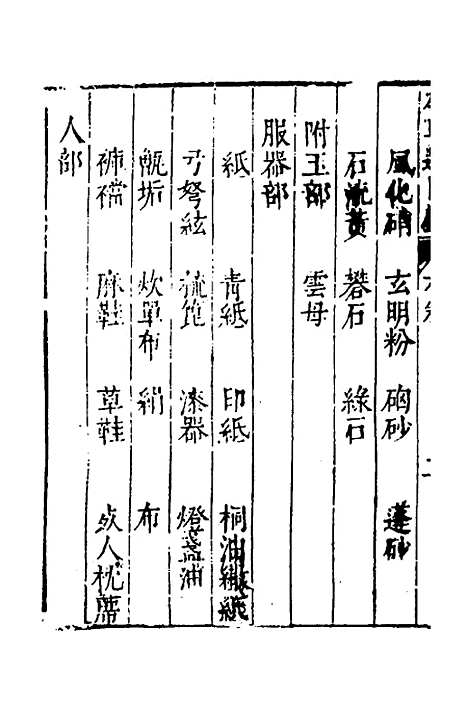 風化硝　玄明粉　硇砂　蓬砂
石硫黃　礬石　綠石
附玉部　雲母
服器部
紙　青紙　印紙　桐油繖紙
弓弩絃　梳篦　漆器　燈盞油
甑垢　炊單布　絹　布
褲襠　麻鞋　草鞋　死人枕蓆
人部